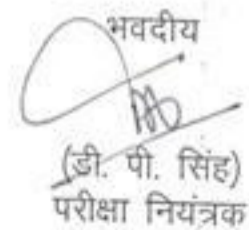 भवदीय
(डी. पी. सिंह)
परीक्षा नियंत्रक